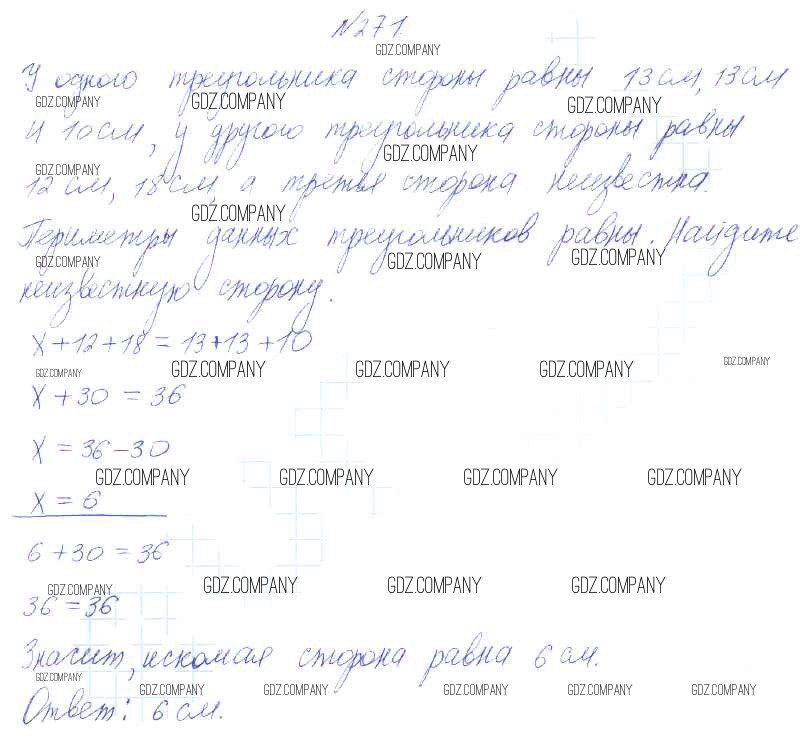 №271.
У одного треугольника стороны равны 13 см, 13 см
и 10 см, у другого треугольника стороны равны
12 см, 18 см, а третья сторона неизвестна.
Периметры данных треугольников равны. Найдите
неизвестную сторону.
x+12+18=13+13+10
x+30=36
x=36-30
x=6
6+30=36
36=36
Значит, искомая сторона равна 6 см.
Ответ: 6 см.
GDZ.COMPANY
GDZ.COMPANY GDZ.COMPANY GDZ.COMPANY
GDZ.COMPANY
GDZ.COMPANY
GDZ.COMPANY
GDZ.COMPANY GDZ.COMPANY GDZ.COMPANY
GDZ.COMPANY GDZ.COMPANY GDZ.COMPANY GDZ.COMPANY GDZ.COMPANY
GDZ.COMPANY GDZ.COMPANY GDZ.COMPANY GDZ.COMPANY
GDZ.COMPANY GDZ.COMPANY GDZ.COMPANY GDZ.COMPANY
GDZ.COMPANY
GDZ.COMPANY GDZ.COMPANY GDZ.COMPANY GDZ.COMPANY GDZ.COMPANY